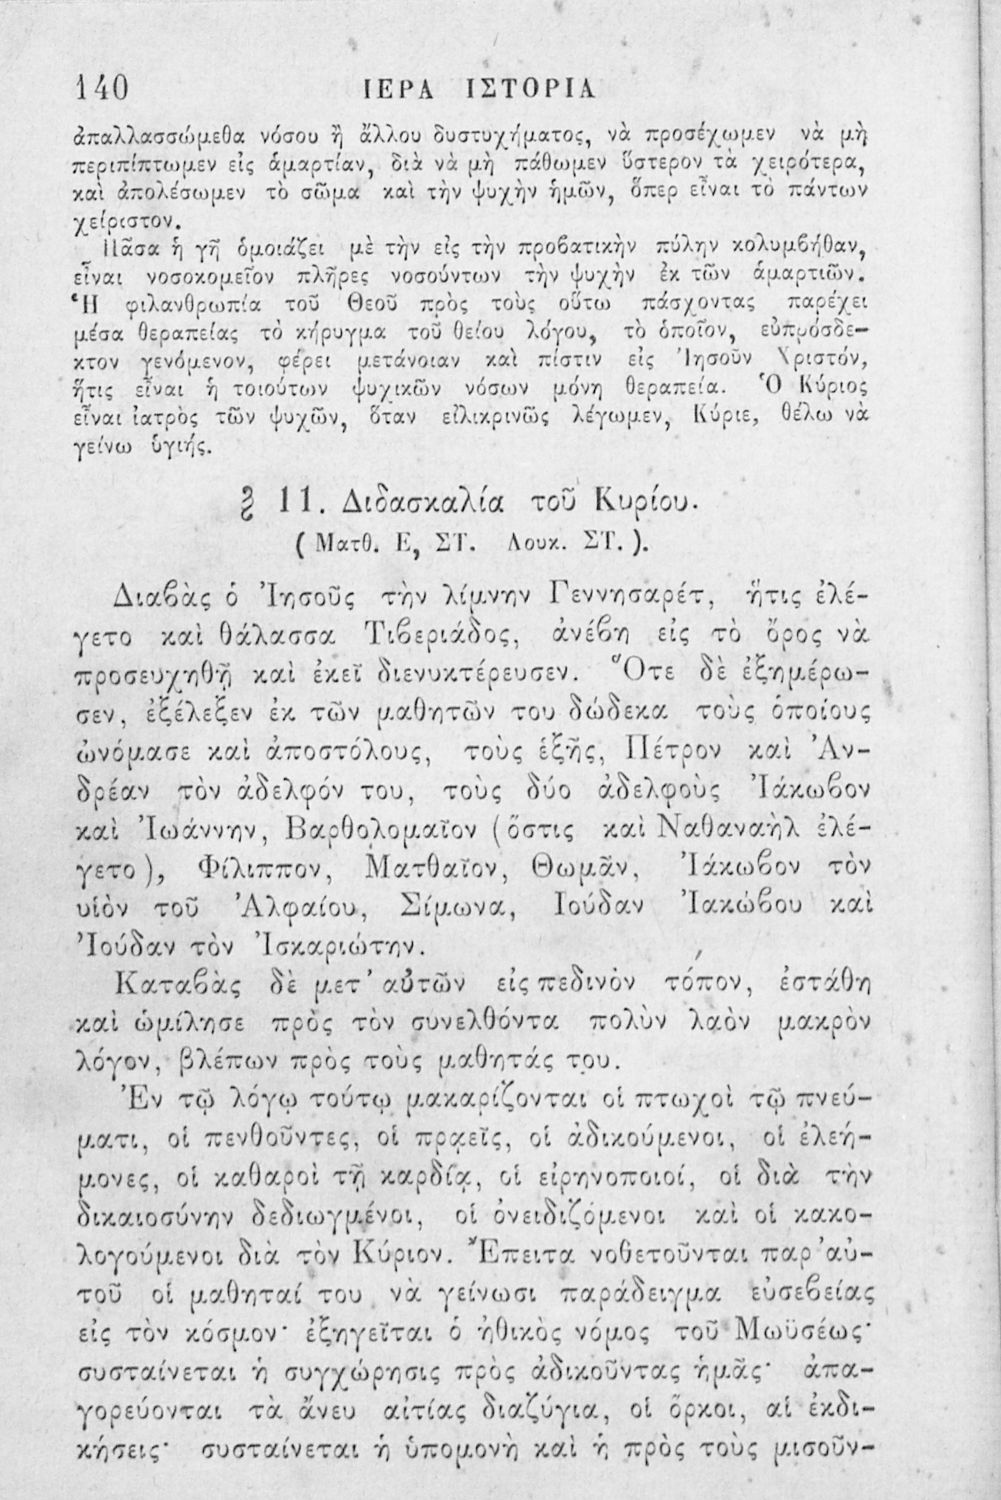 140 ΙΕΡΑ ΙΣΤΟΡΙΑ
ἀπαλλασσώμεθα νόσου ἢ ἄλλου δυστυχήματος, νὰ προσέχωμεν νὰ μὴ
περιπίπτωμεν εἰς ἁμαρτίαν, διὰ νὰ μὴ πάθωμεν ὕστερον τὰ χειρότερα,
καὶ ἀπολέσωμεν τὸ σῶμα καὶ τὴν ψυχὴν ἡμῶν, ὅπερ εἶναι τὸ πάντων
χείριστον.
Πᾶσα ἡ γῆ ὁμοιάζει μὲ τὴν εἰς τὴν προβατικὴν πύλην κολυμβήθαν,
εἶναι νοσοκομεῖον πλῆρες νοσούντων τὴν ψυχὴν ἐκ τῶν ἁμαρτιῶν.
Ἡ φιλανθρωπία τοῦ Θεοῦ πρὸς τοὺς οὕτω πάσχοντας παρέχει
μέσα θεραπείας τὸ κήρυγμα τοῦ θείου λόγου, τὸ ὁποῖον, εὐπρόσδε-
κτον γενόμενον, φέρει μετάνοιαν καὶ πίστιν εἰς Ἰησοῦν Χριστόν,
ἥτις εἶναι ἡ τοιούτων ψυχικῶν νόσων μόνη θεραπεία. Ὁ Κύριος
εἶναι ἰατρὸς τῶν ψυχῶν, ὅταν εἰλικρινῶς λέγωμεν, Κύριε, θέλω νὰ
γείνω ὑγιής.
§ 11. Διδασκαλία τοῦ Κυρίου.
( Ματθ. Ε, ΣΤ. Λουκ. ΣΤ. ).
Διαβὰς ὁ Ἰησοῦς τὴν λίμνην Γεννησαρέτ, ἥτις ἐλέ-
γετο καὶ θάλασσα Τιβεριάδος, ἀνέβη εἰς τὸ ὄρος νὰ
προσευχηθῇ καὶ ἐκεῖ διενυκτέρευσεν. Ὅτε δὲ ἐξημέρω-
σεν, ἐξέλεξεν ἐκ τῶν μαθητῶν του δώδεκα τοὺς ὁποίους
ὠνόμασε καὶ ἀποστόλους, τοὺς ἑξῆς, Πέτρον καὶ Ἀν-
δρέαν τὸν ἀδελφόν του, τοὺς δύο ἀδελφοὺς Ἰάκωβον
καὶ Ἰωάννην, Βαρθολομαῖον (ὅστις καὶ Ναθαναὴλ ἐλέ-
γετο), Φίλιππον, Ματθαῖον, Θωμᾶν, Ἰάκωβον τὸν
υἱὸν τοῦ Ἀλφαίου, Σίμωνα, Ιούδαν Ἰακώβου καὶ
Ἰούδαν τὸν Ἰσκαριώτην.
Καταβὰς δὲ μετ' αὐτῶν εἰς πεδινὸν τόπον, ἐστάθη
καὶ ὡμίλησε πρὸς τὸν συνελθόντα πολὺν λαὸν μακρὸν
λόγον, βλέπων πρὸς τοὺς μαθητάς του.
Ἐν τῷ λόγῳ τούτῳ μακαρίζονται οἱ πτωχοὶ τῷ πνεύ-
ματι, οἱ πενθοῦντες, οἱ πρᾳεῖς, οἱ ἀδικούμενοι, οἱ ἐλεή-
μονες, οἱ καθαροὶ τῇ καρδίᾳ, οἱ εἰρηνοποιοί, οἱ διὰ τὴν
δικαιοσύνην δεδιωγμένοι, οἱ ὀνειδιζόμενοι καὶ οἱ κακο-
λογούμενοι διὰ τὸν Κύριον. Ἔπειτα νοθετοῦνται παρ' αὐ-
τοῦ οἱ μαθηταί του νὰ γείνωσι παράδειγμα εὐσεβείας
εἰς τὸν κόσμον· ἐξηγεῖται ὁ ἠθικὸς νόμος τοῦ Μωϋσέως·
συσταίνεται ἡ συγχώρησις πρὸς ἀδικοῦντας ἡμᾶς· ἀπα-
γορεύονται τὰ ἄνευ αἰτίας διαζύγια, οἱ ὅρκοι, αἱ ἐκδι-
κήσεις· συσταίνεται ἡ ὑπομονὴ καὶ ἡ πρὸς τοὺς μισοῦν-